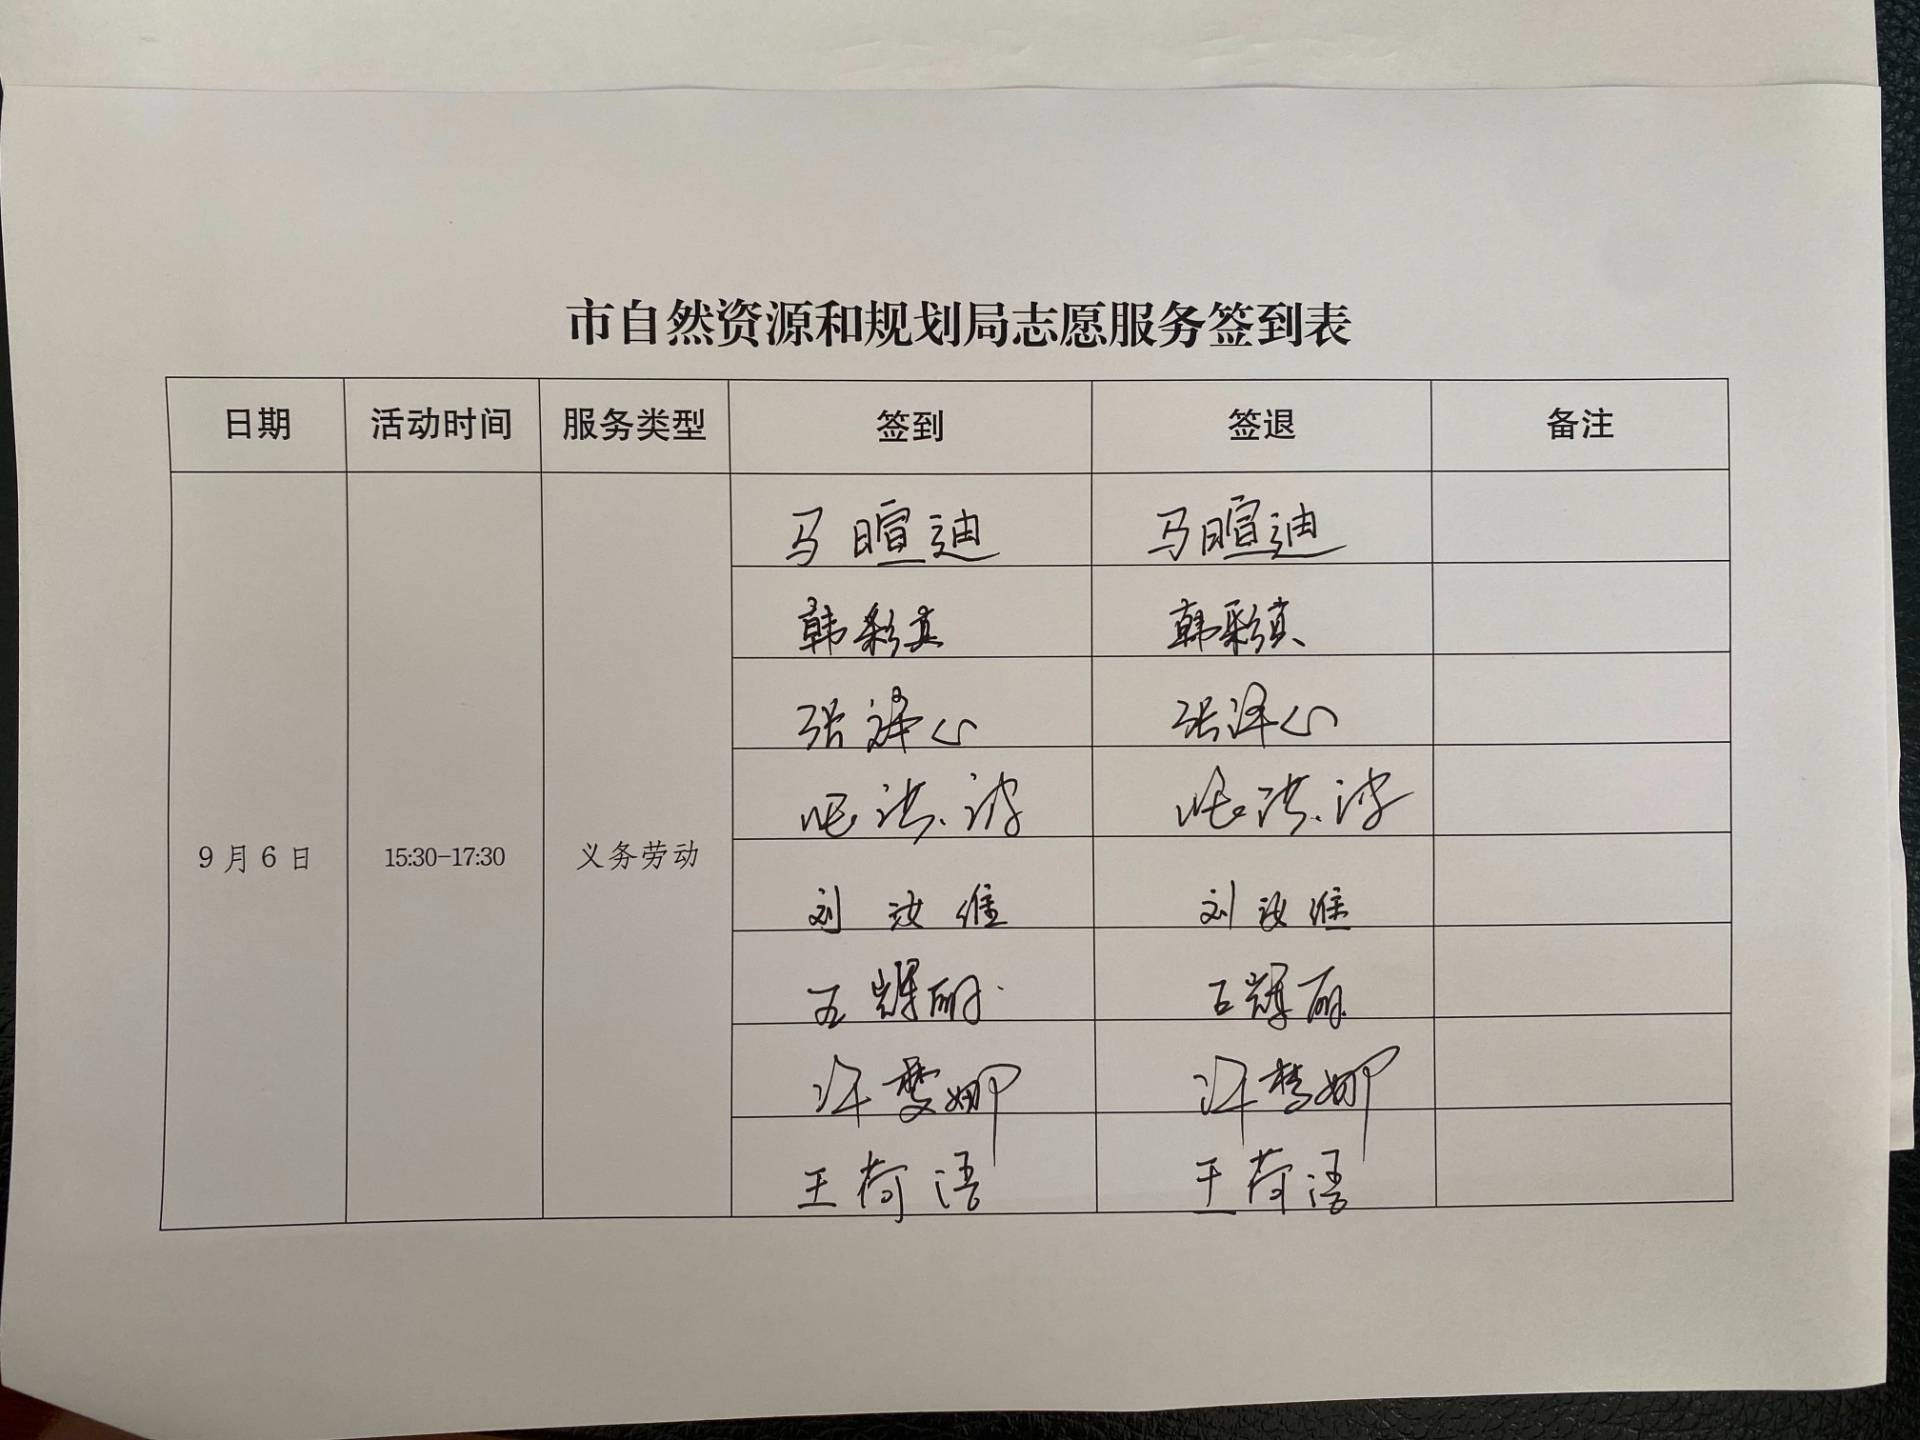 市自然资源和规划局志愿服务签到表
日期 活动时间 服务类型 签到 签退 备注
马暄迪 马暄迪
韩彩真 韩彩真
张译心 张泽心
洪波 洪波
9月6日 15:30-17:30 义务劳动
刘汝维 刘汝维
王辉丽 王辉丽
许雯娜 许梦娜
王荷语 王荷语